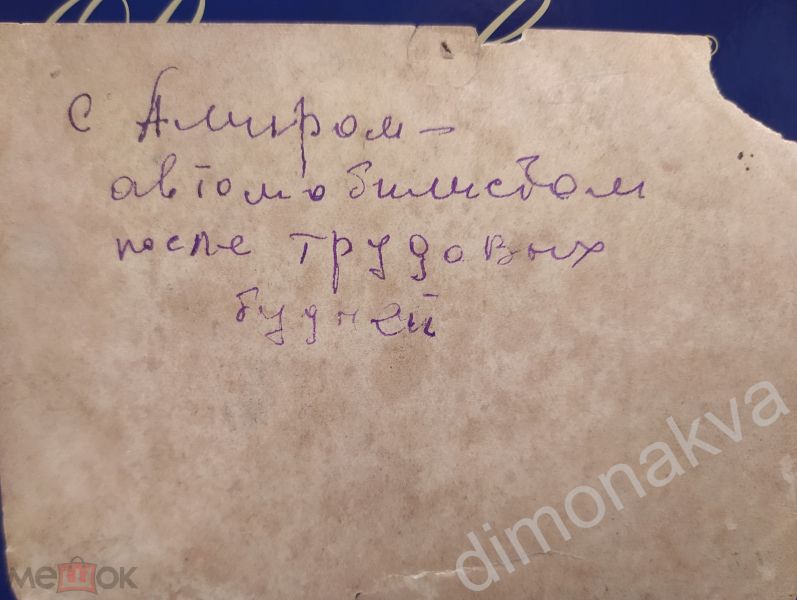 с Амиром –
автомобилистом
после трудовых
будней
dimonakva
мешок